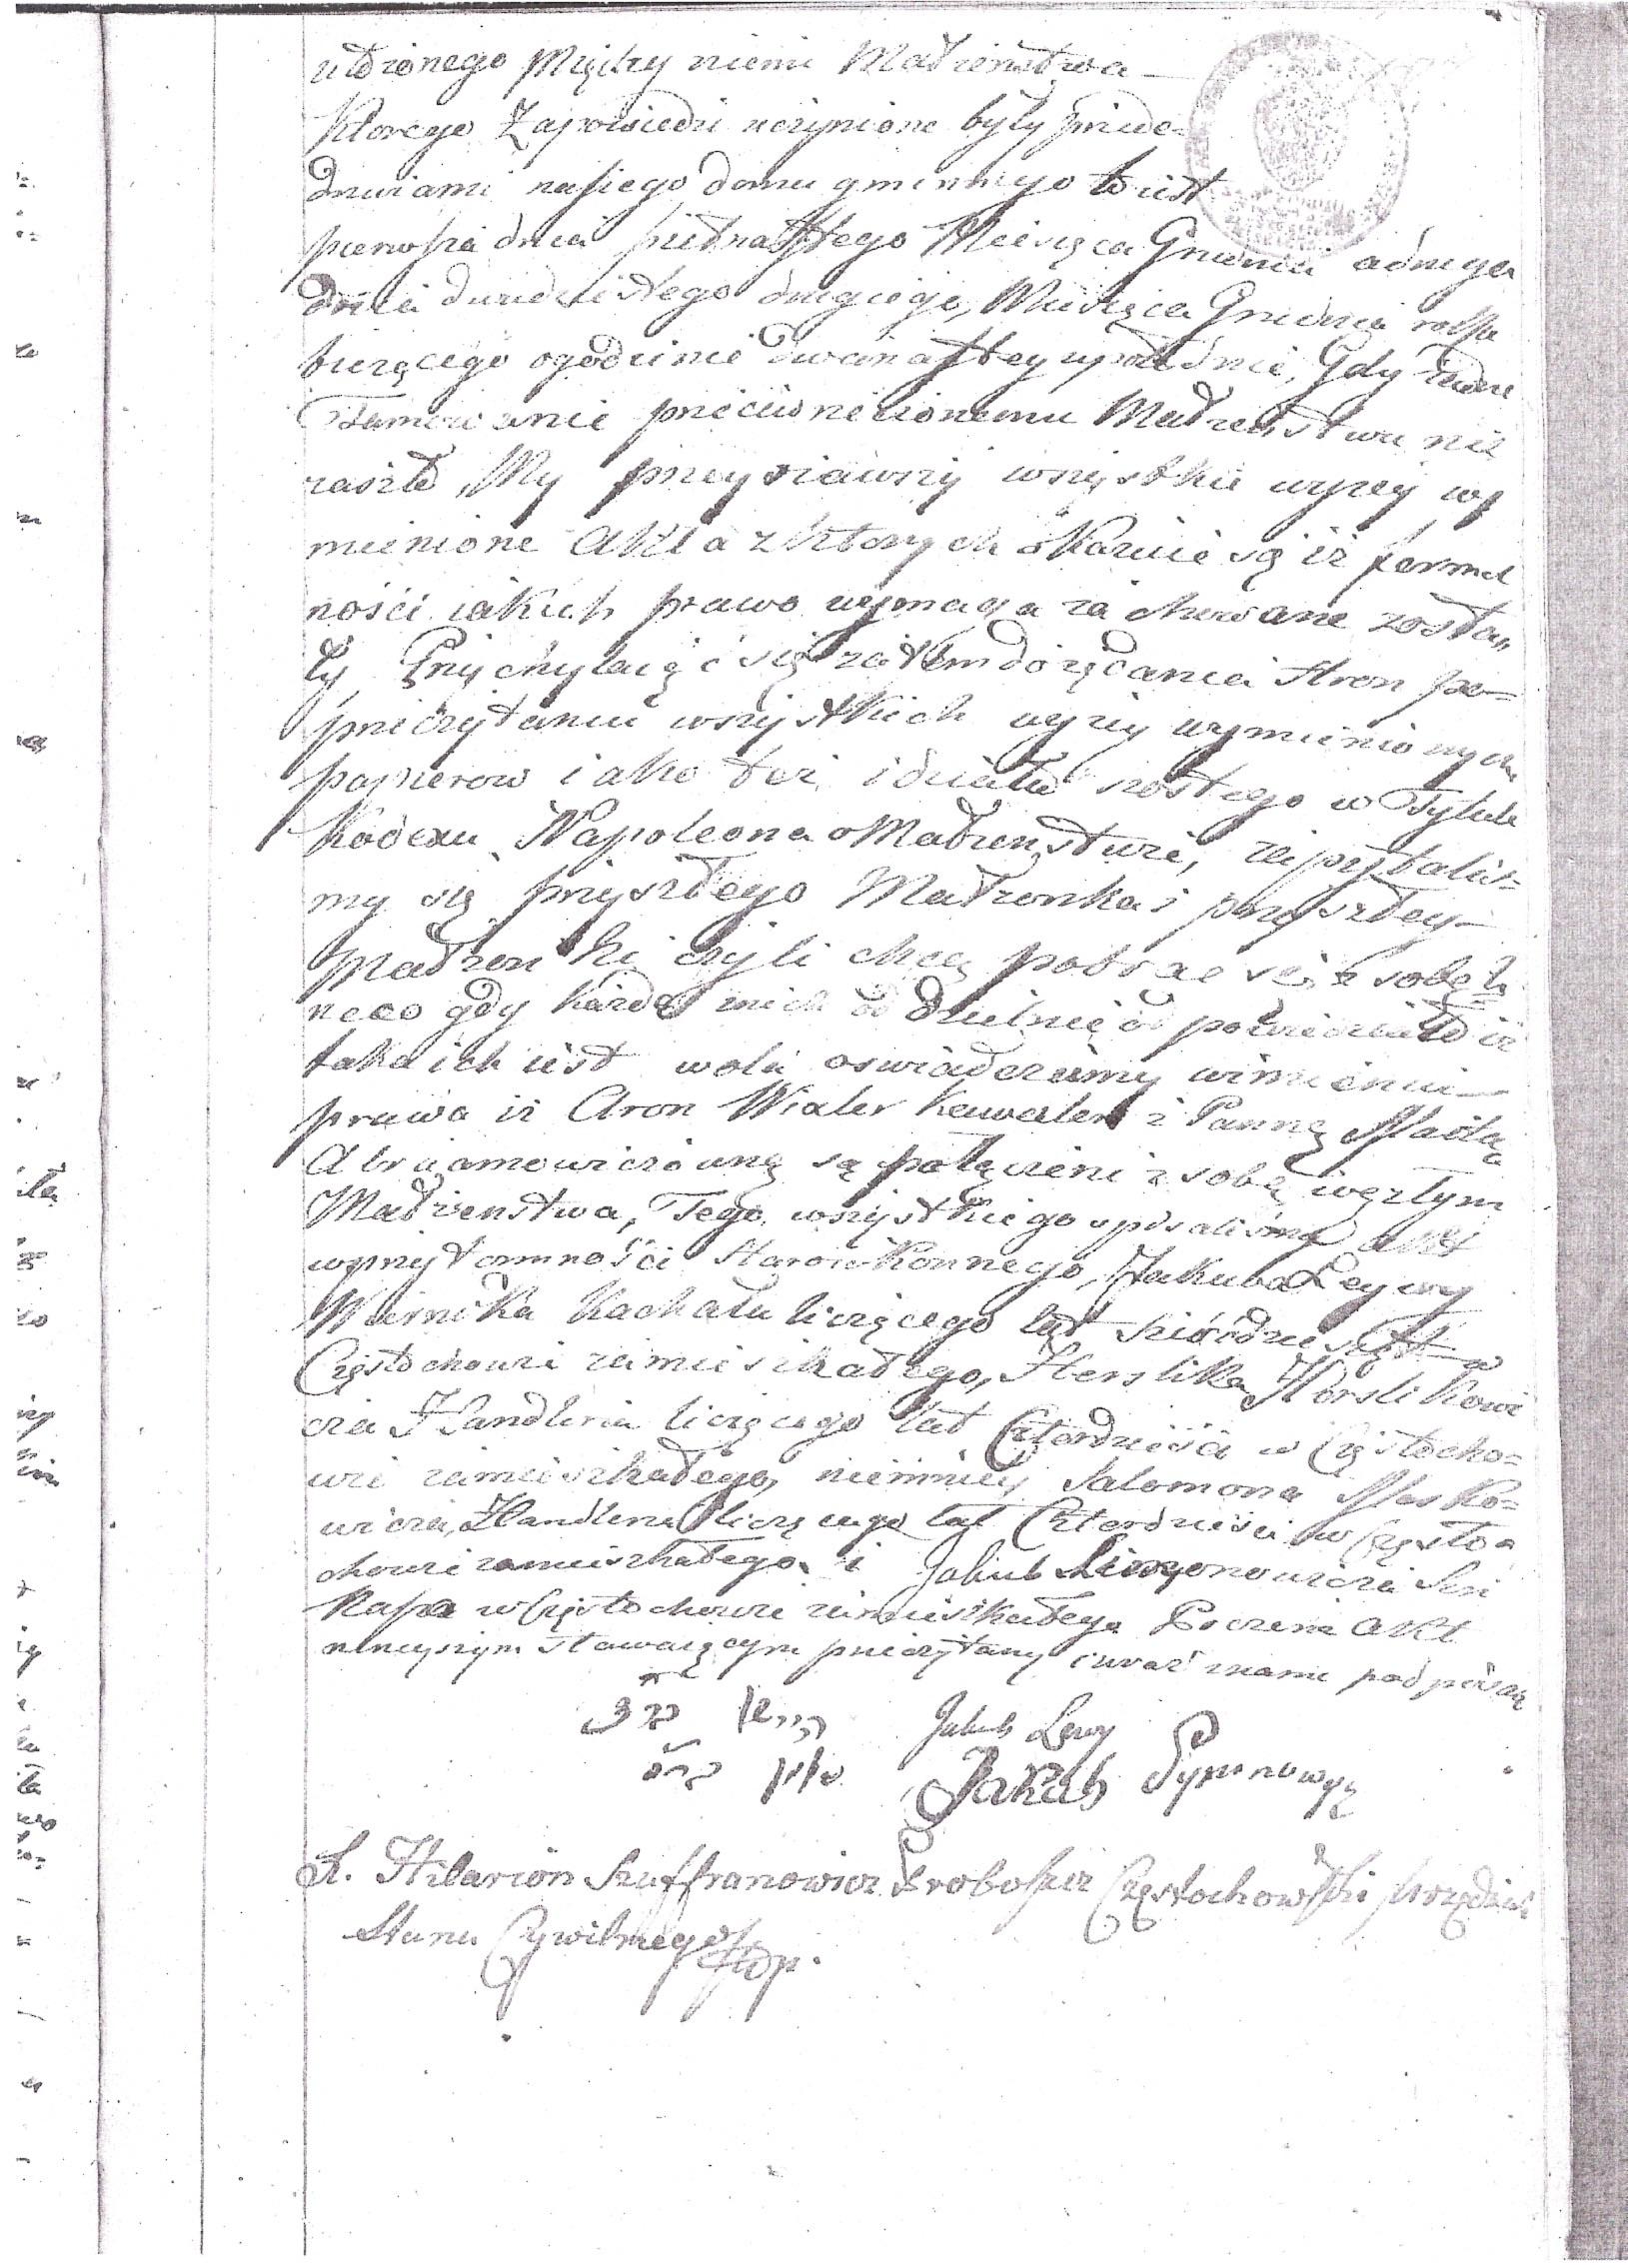 ułożonego Między niemi Małżeństwa —
Ktorego Zapowiedzi uczynione były przede-
drzwiami naszego domu gminnego to iest
pierwsza dnia piętnastego Miesiąca Grudnia a druga
dnia dwudziestego drugiego, Miesiąca Grudnia roku
bieżącego o godzinie dwónastey w południe, Gdy żadne
Tamowanie przeciw rzeczonemu Małżeństwu nie
zaszło, My przeyrzawszy wszystkie wyzey wy
mienione Akta z ktorych okazuie się iż formal
ności iakich prawo wymaga zachowane zosta-
ły Przychylaiąc się zatem do żądania stron po-
przeczytaniu wszystkich wyzey wymienionych
papierow iako też i działu szostego w Tytule
Kodexu Napoleona o Małżeństwie, zapytaliś-
my się przyszłego Małżonka i przyszłey —
Małżonki czyli chcą pobrac się z sobą
na co gdy każde z nich oddzielnie odpowiedziało iż
taka ich iest wola oswiadczamy w imieniu —
prawa iż Aron Wixler Kawaler z Panną
Abraamowiczowną są połączeni z sobą węzłym
Małżenstwa, Tego wszystkiego spisalismy akt
w przytomności Starozakonnego, Jakuba Leywy
Kachału liczącego lat sześćdziesiąt w
Częstochowie zamieszkałego, Herslika Herslikowi
cza Handlerza liczącego lat Czterdzieści w Częstocho-
wie zamieszkałego, niemniey Salomona Mosko-
wicza, Handlerza liczącego lat Czterdzieści w Często-
chowie zamieszkałego i Jakub Szymonowicza
w Częstochowie zamieszkałego Poczem Akt
ninieyszym stawaiącym przeczytany i wraz z nami podpisany
Jakub Lewy
Jakub Szymonowyz
X. Hilarion Szuffranowicz Proboszcz Częstochowski Urzędnik
Stanu Cywilnego